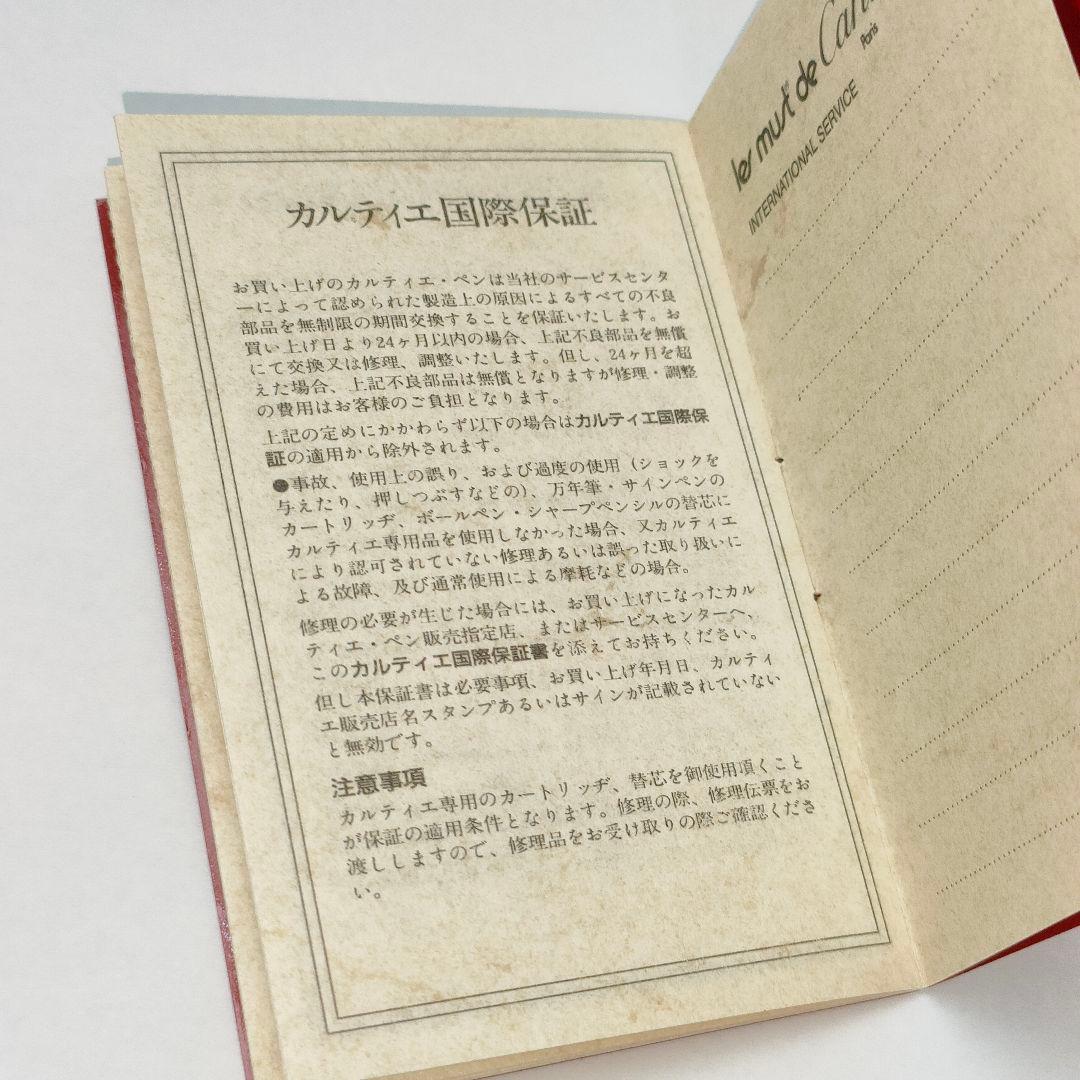 カルティエ国際保証
お買い上げのカルティエ・ペンは当社のサービスセンタ
ーによって認められた製造上の原因によるすべての不良
部品を無制限の期間交換することを保証いたします。お
買い上げ日より24ヶ月以内の場合、上記不良部品を無償
にて交換又は修理、調整いたします。但し、24ヶ月を超
えた場合、上記不良部品は無償となりますが修理・調整
の費用はお客様のご負担となります。
上記の定めにかかわらず以下の場合はカルティエ国際保
証の適用から除外されます。
●事故、使用上の誤り、および過度の使用（ショックを
与えたり、押しつぶすなどの）、万年筆・サインペンの
カートリッヂ、ボールペン・シャープペンシルの替芯に
カルティエ専用品を使用しなかった場合、又カルティエ
により認可されていない修理あるいは誤った取り扱いに
よる故障、及び通常使用による摩耗などの場合。
修理の必要が生じた場合には、お買い上げになったカル
ティエ・ペン販売指定店、またはサービスセンターへ、
このカルティエ国際保証書を添えてお持ちください。
但し本保証書は必要事項、お買い上げ年月日、カルティ
エ販売店名スタンプあるいはサインが記載されていない
と無効です。
注意事項
カルティエ専用のカートリッヂ、替芯を御使用頂くこと
が保証の適用条件となります。修理の際、修理伝票をお
渡ししますので、修理品をお受け取りの際ご確認くださ
い。
les must de
Paris
INTERNATIONAL SERVICE